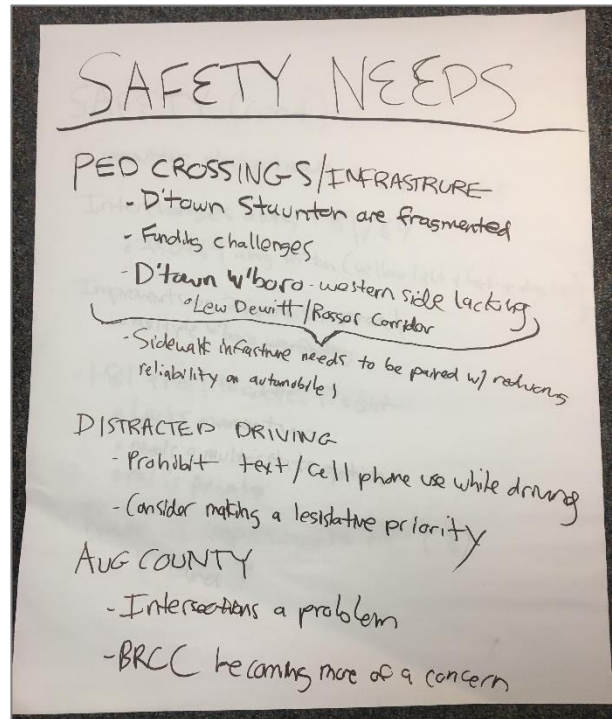 SAFETY NEEDS
PED CROSSINGS/INFRASTRURE
- D'town Staunton are fragmented
- Funding challenges
- D'town W'boro - western side lacking
°Lew Dewitt/Rosser Corridor
- Sidewalk infrastrure needs to be paired w/ reducing
reliability on automobiles
DISTRACTED DRIVING
- Prohibit text/cell phone use while driving
- Consider making a legislative priority
AUG COUNTY
- Intersections a problem
- BRCC becoming more of a concern